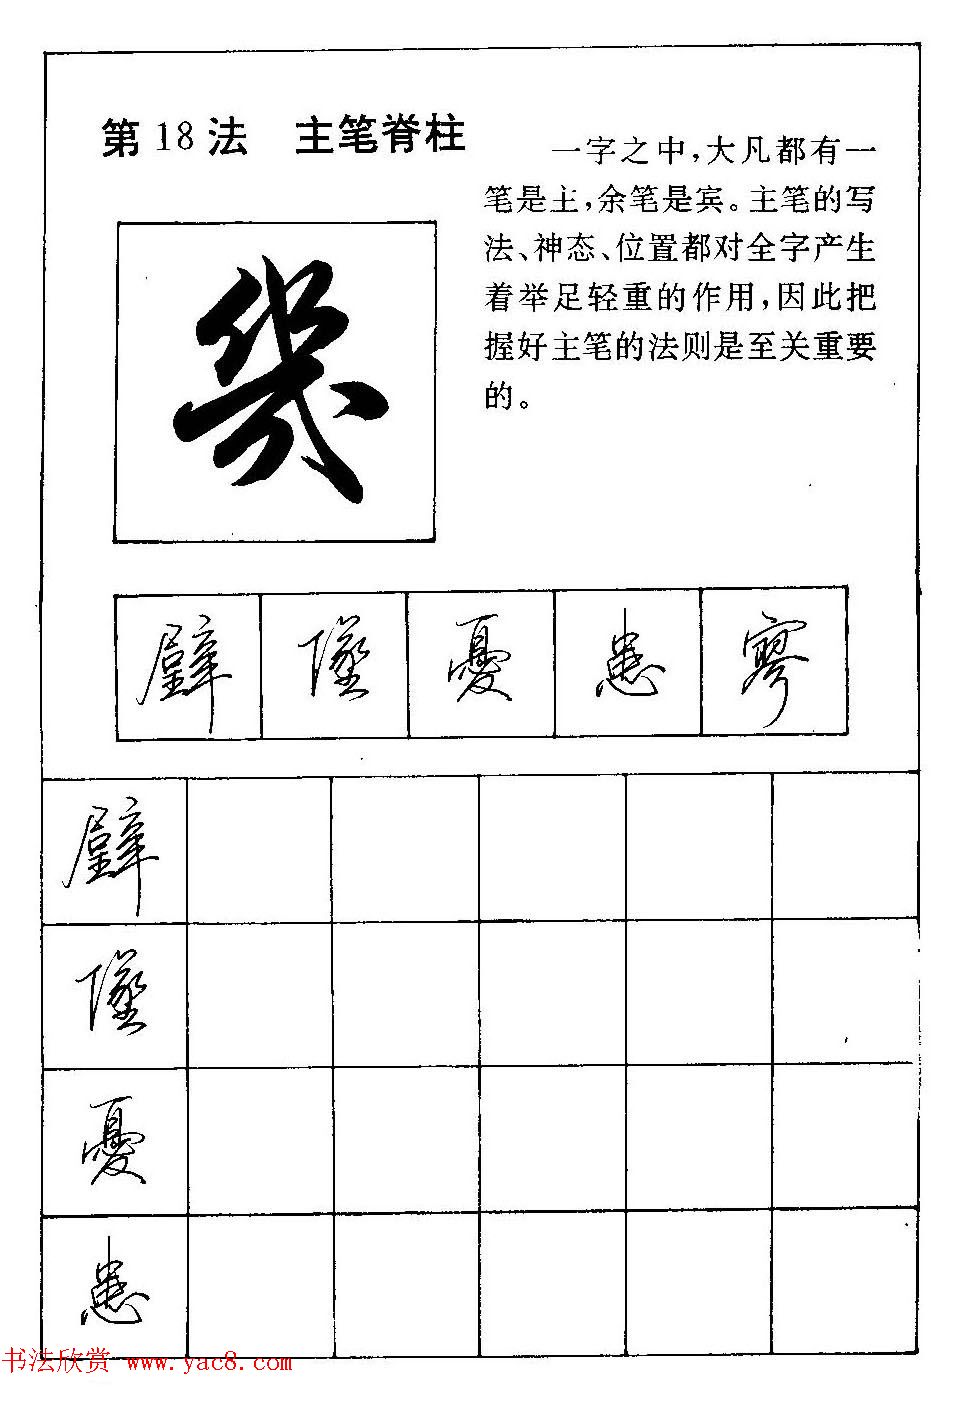 第18法 主笔脊柱
一字之中,大凡都有一
笔是主,余笔是宾。主笔的写
法、神态、位置都对全字产生
着举足轻重的作用,因此把
握好主笔的法则是至关重要
的。
幾
壁 墜 憂 患 寥
壁
墜
憂
患
书法欣赏 www.yac8.com